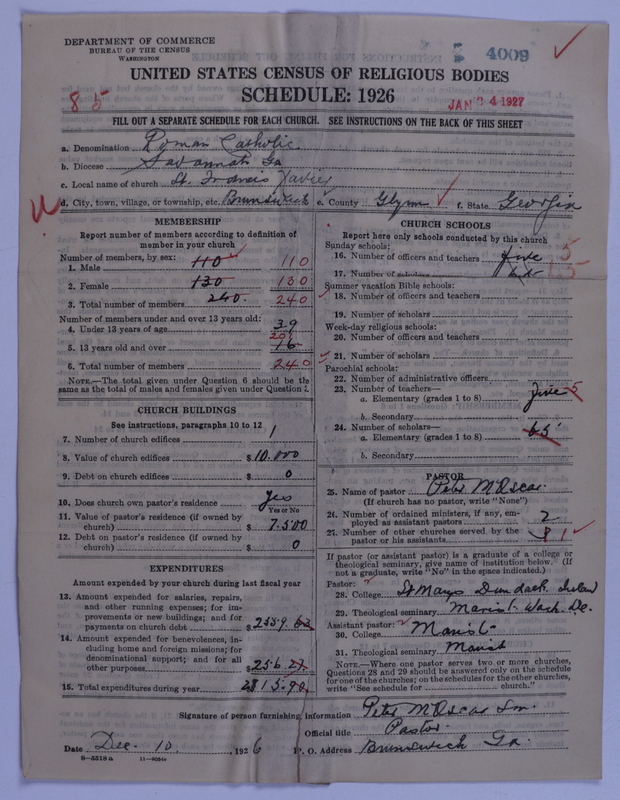 DEPARTMENT OF COMMERCE
BUREAU OF THE CENSUS
WASHINGTON
4009
UNITED STATES CENSUS OF RELIGIOUS BODIES
SCHEDULE: 1926
85
JAN 24 1927
FILL OUT A SEPARATE SCHEDULE FOR EACH CHURCH. SEE INSTRUCTIONS ON THE BACK OF THIS SHEET
a. Denomination Roman Catholic
b. Diocese Savannah Ga
c. Local name of church St. Francis Xavier
d. City, town, village, or township, etc. Brunswick e. County Glynn f. State Georgia
MEMBERSHIP
Report number of members according to definition of
member in your church
Number of members, by sex:
1. Male 110 110
2. Female 130 130
3. Total number of members 240 240
Number of members under and over 13 years old:
4. Under 13 years of age 39
201
5. 13 years old and over
6. Total number of members 240
NOTE.—The total given under Question 6 should be the
same as the total of males and females given under Question 3.
CHURCH BUILDINGS
See instructions, paragraphs 10 to 12
7. Number of church edifices 1
8. Value of church edifices $10.000
9. Debt on church edifices $ 0
10. Does church own pastor's residence Yes
Yes or No
11. Value of pastor's residence (if owned by
church) $ 7.500
12. Debt on pastor's residence (if owned by
church) $ 0
EXPENDITURES
Amount expended by your church during last fiscal year
13. Amount expended for salaries, repairs,
and other running expenses; for im-
provements or new buildings; and for
payments on church debt $2559.63
14. Amount expended for benevolences, in-
cluding home and foreign missions; for
denominational support; and for all
other purposes $256.27
15. Total expenditures during year 2815.90
CHURCH SCHOOLS
Report here only schools conducted by this church
Sunday schools:
16. Number of officers and teachers five 5
17. Number of scholars
Summer vacation Bible schools:
18. Number of officers and teachers
19. Number of scholars
Week-day religious schools:
20. Number of officers and teachers
21. Number of scholars
Parochial schools:
22. Number of administrative officers
23. Number of teachers—
a. Elementary (grades 1 to 8) five 5
b. Secondary
24. Number of scholars—
a. Elementary (grades 1 to 8) 65
b. Secondary
PASTOR
25. Name of pastor Peter McOscar
(If church has no pastor, write "None")
26. Number of ordained ministers, if any, em-
ployed as assistant pastors 2
27. Number of other churches served by the
pastor or his assistants 1
If pastor (or assistant pastor) is a graduate of a college or
theological seminary, give name of institution below. (If
not a graduate, write "No" in the space indicated.)
Pastor:
28. College St Marys Dundack Ireland
29. Theological seminary Marist. Wash. DC.
Assistant pastor:
30. College Marist
31. Theological seminary Marist
NOTE.—Where one pastor serves two or more churches,
Questions 28 and 29 should be answered only on the schedule
for one of the churches; on the schedules for the other churches,
write "See schedule for church."
Signature of person furnishing information Peter McOscar Sm.
Official title Pastor
Date Dec. 10, 1926 P. O. Address Brunswick Ga.
8-5518a 11-9054